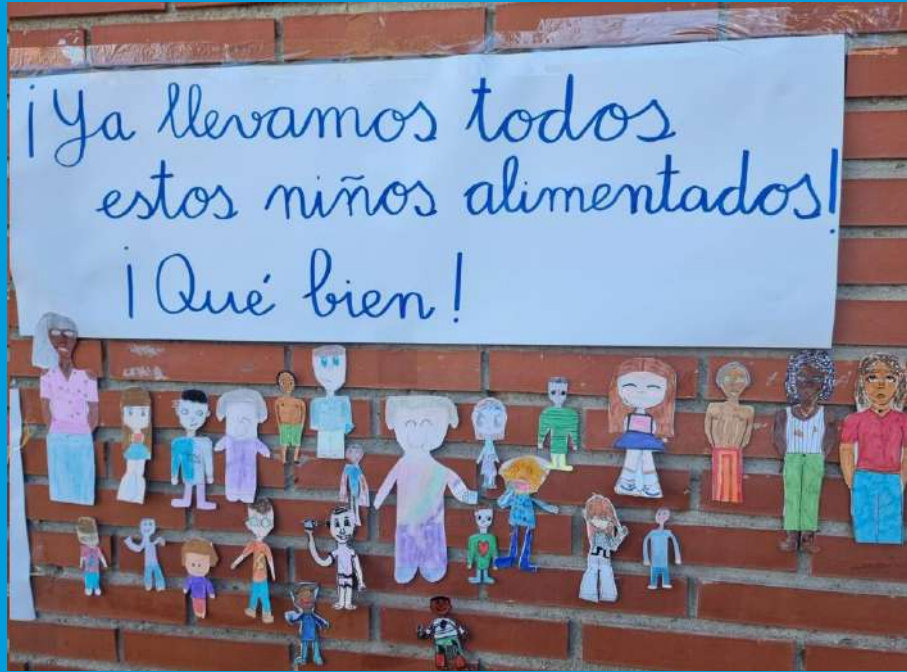 ¡Ya llevamos todos
estos niños alimentados!
¡Qué bien!